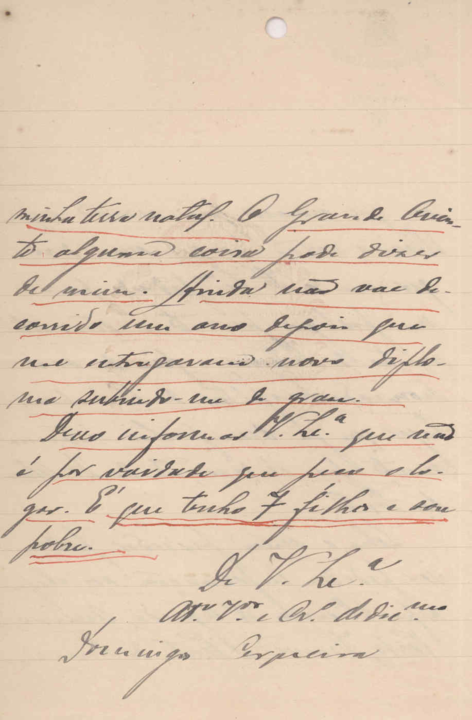 minha terra natal. O Grande Orien-
te alguma coisa pode dizer
de mim. Ainda não vae de-
corrido um ano depois que
me entregaram novo diplo-
ma subindo-me de grau.
Devo informar V. Ex.ª que não
é por vaidade que peço o lo-
gar. É que tenho 7 filhos e sou
pobre.
De V. Ex.ª
At.º V.or e Cr.º
Domingos Cerqueira